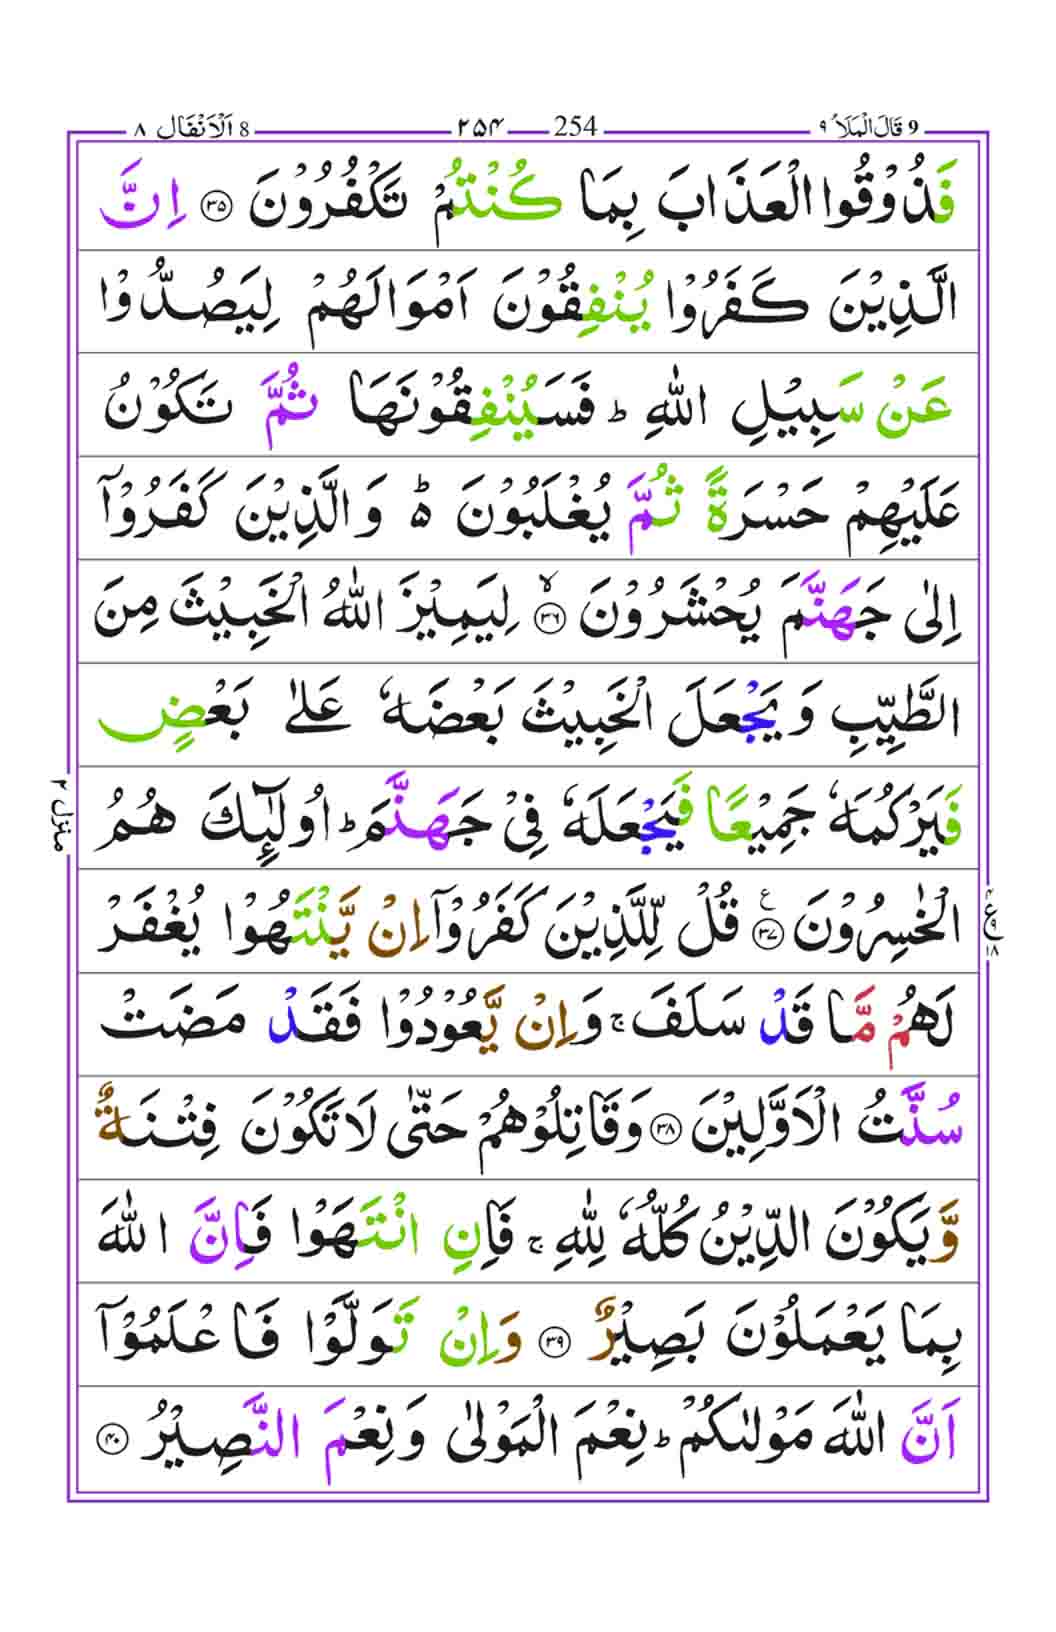 9 قَالَ الْمَلَاُ ۹ 254 ۲۵۴ 8 اَلْاَنْفَال ۸
فَذُوْقُوا الْعَذَابَ بِمَا كُنْتُمْ تَكْفُرُوْنَ ﴿۳۵﴾ اِنَّ
الَّذِيْنَ كَفَرُوْا يُنْفِقُوْنَ اَمْوَالَهُمْ لِيَصُدُّوْا
عَنْ سَبِيْلِ اللّٰهِ ؕ فَسَيُنْفِقُوْنَهَا ثُمَّ تَكُوْنُ
عَلَيْهِمْ حَسْرَةً ثُمَّ يُغْلَبُوْنَ ؕ۬ وَالَّذِيْنَ كَفَرُوْۤا
اِلٰى جَهَنَّمَ يُحْشَرُوْنَ ﴿ۙ۳۶﴾ لِيَمِيْزَ اللّٰهُ الْخَبِيْثَ مِنَ
الطَّيِّبِ وَيَجْعَلَ الْخَبِيْثَ بَعْضَهٗ عَلٰى بَعْضٍ
فَيَرْكُمَهٗ جَمِيْعًا فَيَجْعَلَهٗ فِىْ جَهَنَّمَ ؕ اُولٰٓئِكَ هُمُ
الْخٰسِرُوْنَ ﴿۳۷﴾ ع قُلْ لِّلَّذِيْنَ كَفَرُوْۤا اِنْ يَّنْتَهُوْا يُغْفَرْ
لَهُمْ مَّا قَدْ سَلَفَ ۚ وَاِنْ يَّعُوْدُوْا فَقَدْ مَضَتْ
سُنَّتُ الْاَوَّلِيْنَ ﴿۳۸﴾ وَقَاتِلُوْهُمْ حَتّٰى لَا تَكُوْنَ فِتْنَةٌ
وَّيَكُوْنَ الدِّيْنُ كُلُّهٗ لِلّٰهِ ۚ فَاِنِ انْتَهَوْا فَاِنَّ اللّٰهَ
بِمَا يَعْمَلُوْنَ بَصِيْرٌ ﴿۳۹﴾ وَاِنْ تَوَلَّوْا فَاعْلَمُوْۤا
اَنَّ اللّٰهَ مَوْلٰٮكُمْ ؕ نِعْمَ الْمَوْلٰى وَنِعْمَ النَّصِيْرُ ﴿۴۰﴾
منزل ۲
۴
ع
۹
۱۸